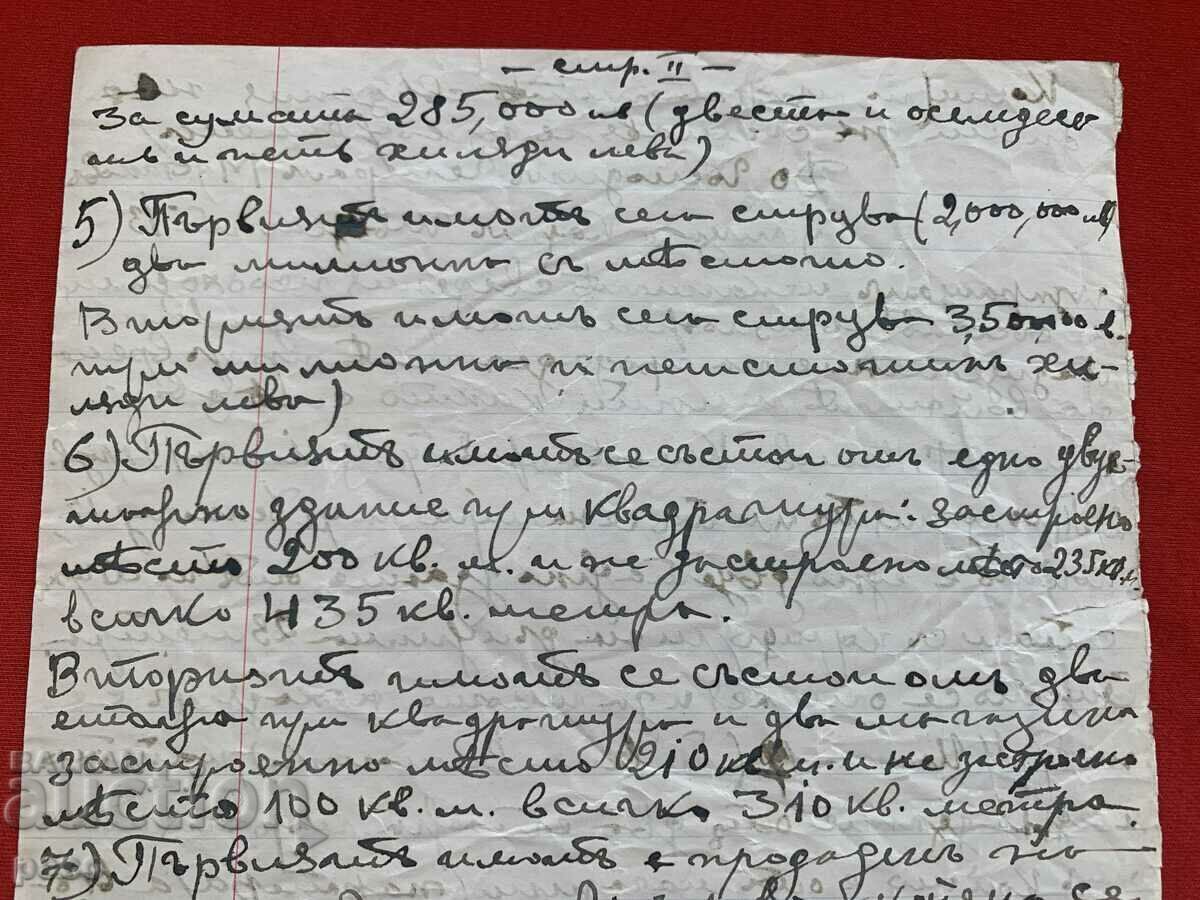 — стр. II —
За сумата 285,000 лв (двеста и осемдесѣ
ть и петь хиляди лева)
5) Първиятъ имотъ сега струва (2,000,000 лв)
два милиона съ мѣстото.
Вториятъ имотъ сега струва 3,500,000 л.
три милиона и петстотинъ хи-
ляди лева)
6) Първиятъ имотъ се състои отъ едно двуе-
тажно здание при квадратура: застроено
мѣсто 200 кв. м. и не застроено мѣсто 235 кв. м.
всичко 435 кв. метра.
Вториятъ имотъ се състои отъ два
етажа при квадратура и два магазина
застроенно мѣсто 210 кв. м. и не застроено
мѣсто 100 кв. м. всичко 310 кв. метра.
7) Първиятъ имотъ е продаденъ на